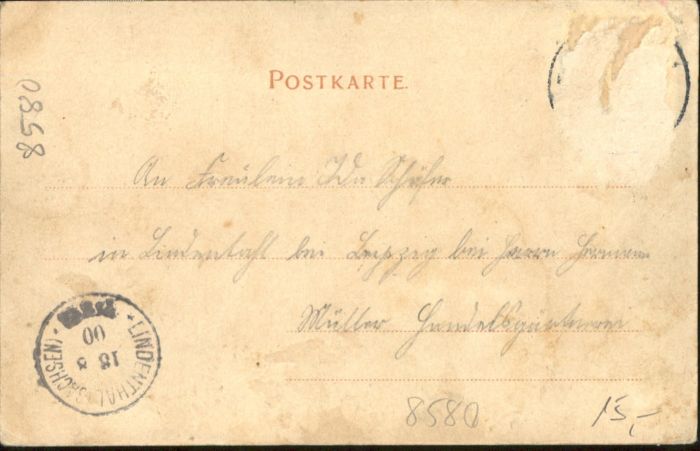 POSTKARTE.
8580
An Freulein Ida Schäfer
in Lindentahl bei Leipzig bei Herrn Hermann
Müller Handelsgärtnerei
LINDENTHAL (SACHSEN)
18 8
00
8580
15,-